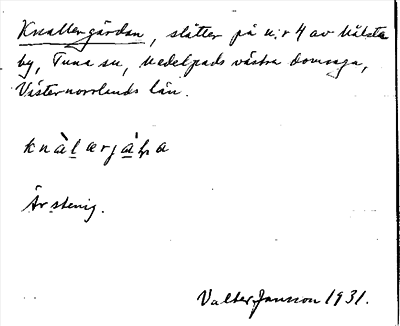 Knallergärdan, slåtter på n:r 4 av Målsta
by, Tuna sn, Medelpads västra domsaga,
Västernorrlands län.
knàlærjáɽa
Är stenig.
Valter Jansson 1931.